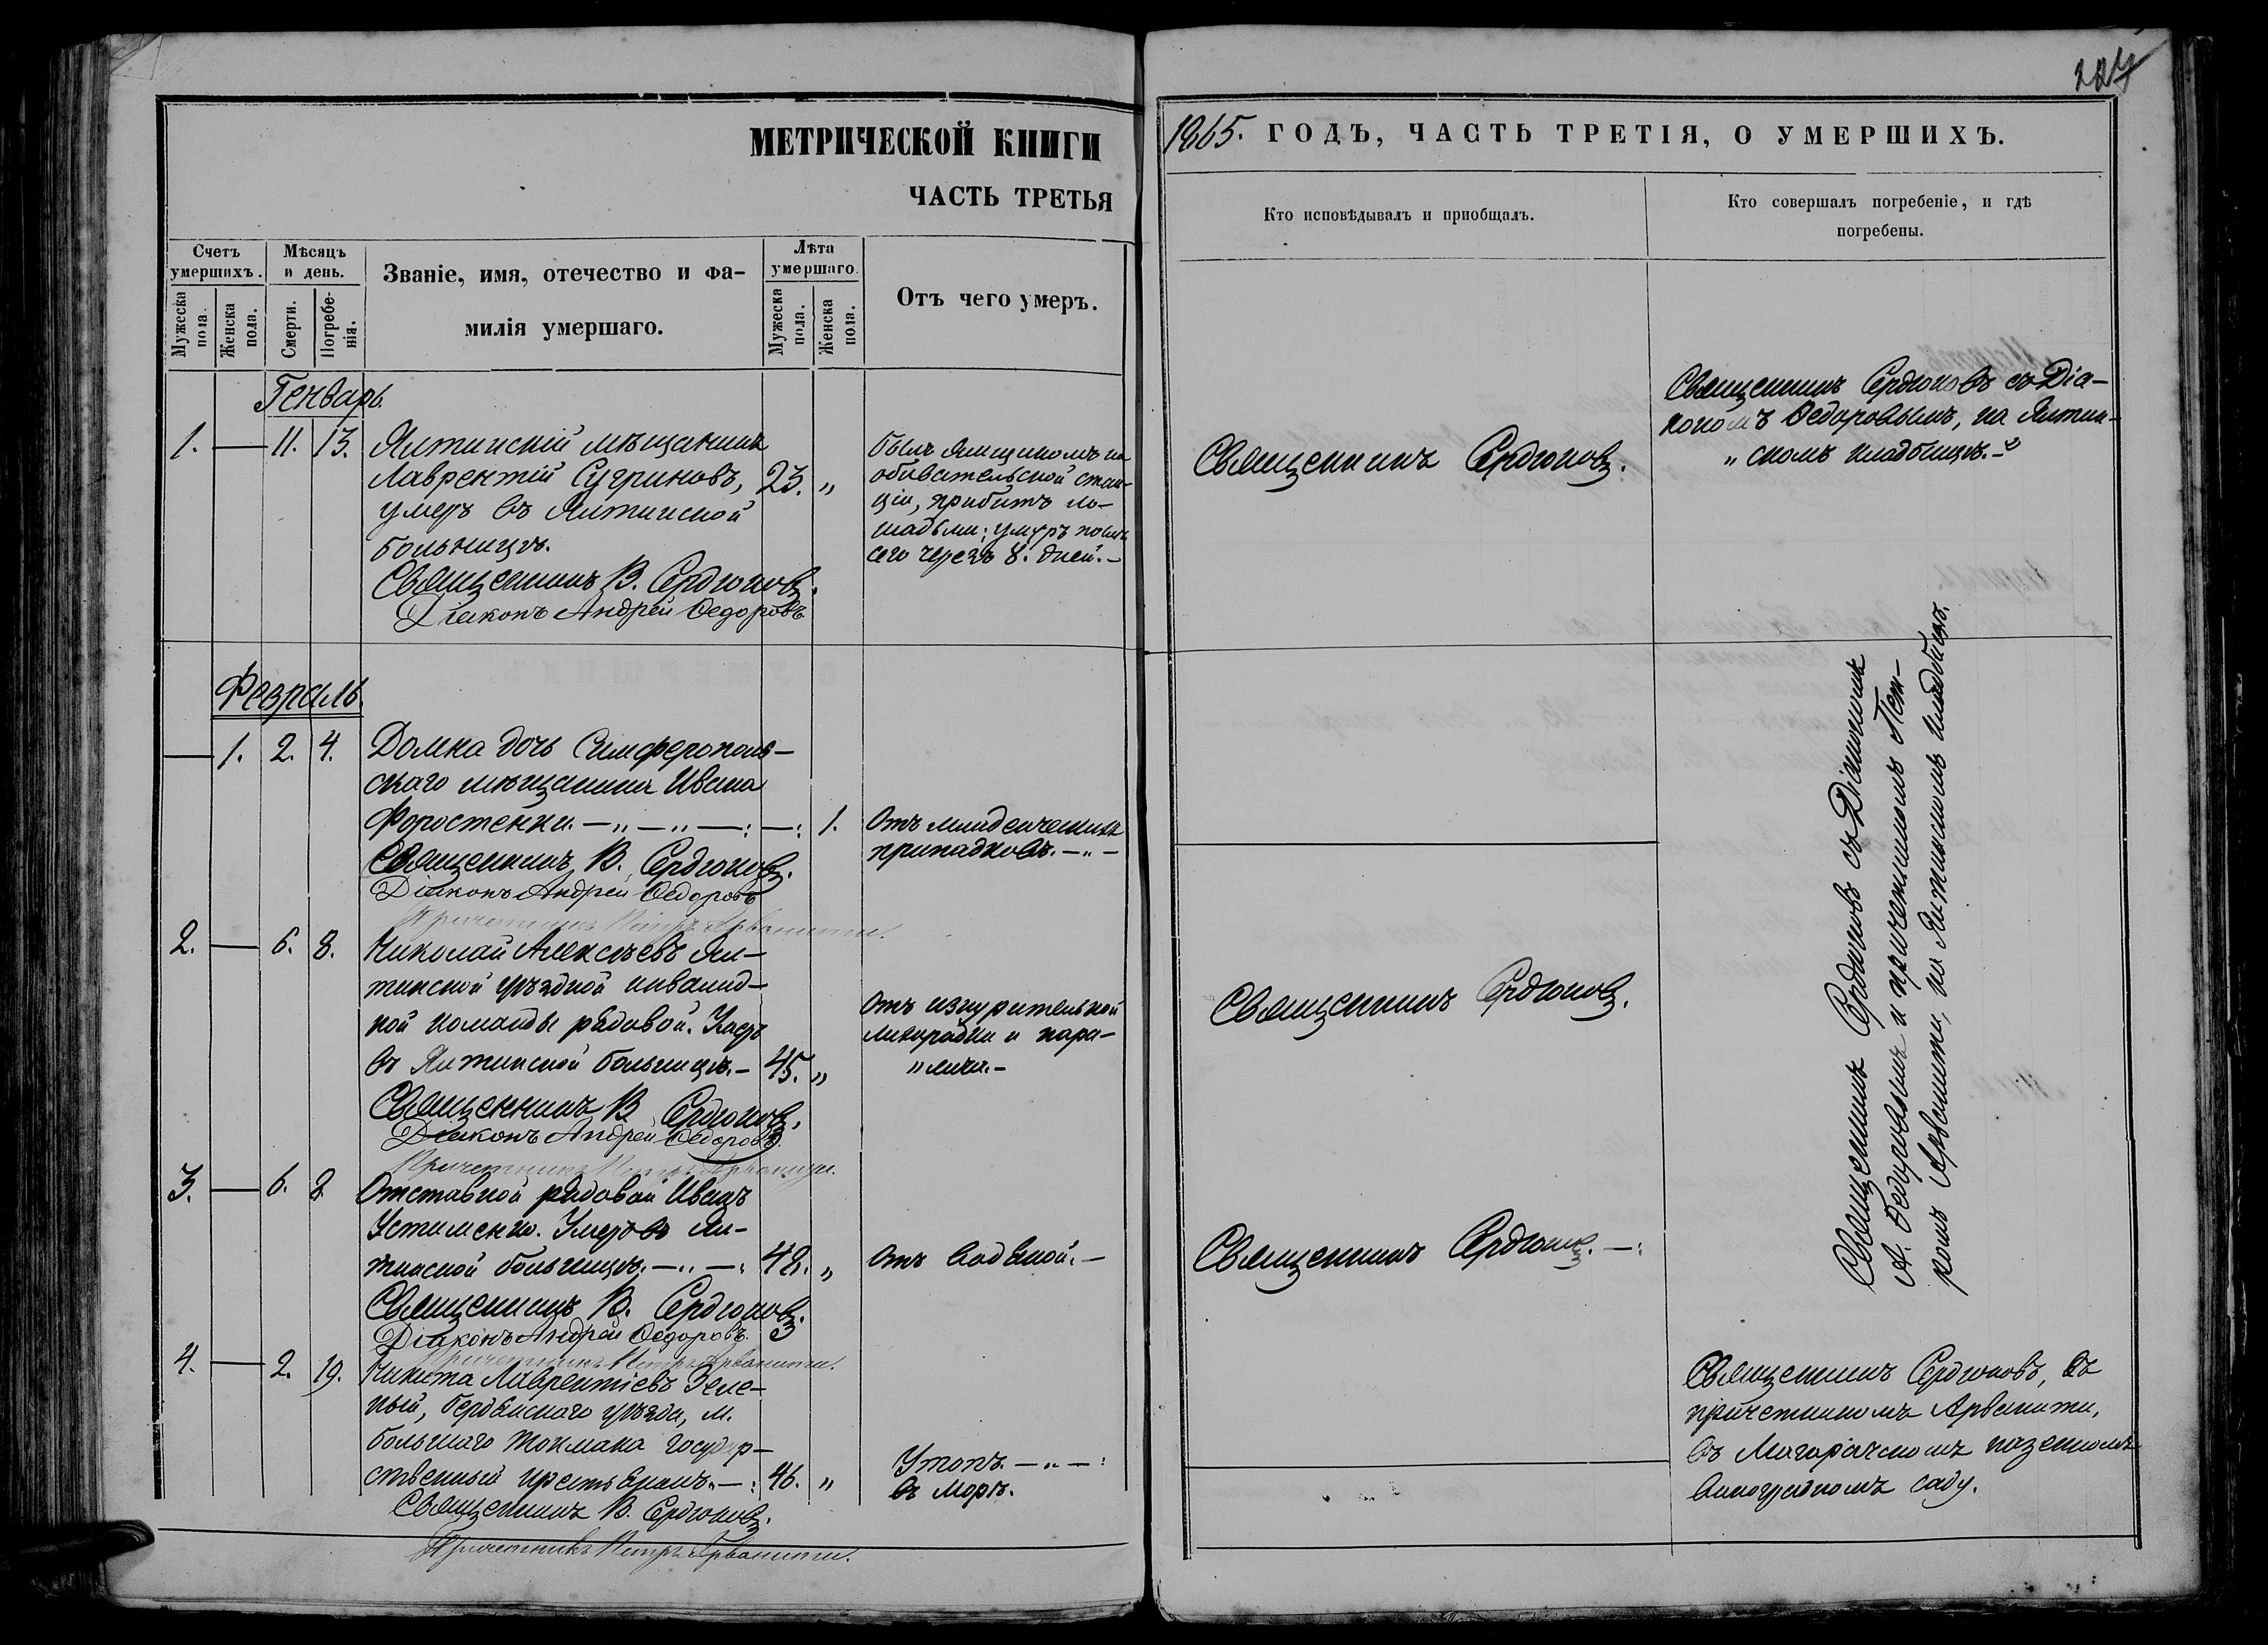 МЕТРИЧЕСКОЙ КНИГИ
ЧАСТЬ ТРЕТЬЯ
Счетъ умершихъ.
Мужеска пола.
Женска пола.
Мѣсяцъ и день.
Смерти.
Погребенія.
Званіе, имя, отечество и фа-
милія умершаго.
Лѣта умершаго.
Мужеска пола.
Женска пола.
Отъ чего умеръ.
Генварь.
1. — 11. 13. Ялтинскій мѣщанинъ
Лаврентій Сугриновъ, 23. „
умеръ въ Ялтинской
больницѣ.
Былъ ямщикомъ на
обывательской стан-
ціи, прибитъ ло-
шадьми; умеръ послѣ
сего черезъ 8. дней. —
Священникъ В. Сердюковъ.
Діаконъ Андрей Ѳедоровъ
Февраль.
— 1. 2. 4. Домка дочь Симферополь-
скаго мѣщанина Ивана
Форостенки. — „ — „ — : — : 1.
Отъ младенческихъ
припадковъ. — „ —
Священникъ В. Сердюковъ.
Діаконъ Андрей Ѳедоровъ
Причетникъ Петръ Арванити.
2. — 6. 8. Николай Алексѣевъ Ял-
тинской уѣздной инвалид-
ной команды рядовой. Умеръ
въ Ялтинской больницѣ. — 45. „
Отъ изнурительной
лихорадки и пара-
„ лича. —
Священникъ В. Сердюковъ.
Діаконъ Андрей Ѳедоровъ.
Причетникъ Петръ Арванити.
3. — 6. 8. Отставной рядовой Иванъ
Устименко. Умеръ въ Ял-
тинской больницѣ. — „ — : 42. „
Отъ водяной. —
Священникъ В. Сердюковъ.
Діаконъ Андрей Ѳедоровъ.
Причетникъ Петръ Арванити.
4. — 2. 19. Никита Лаврентіевъ Зеле-
ный, Бердянскаго уѣзда, м.
большаго Токмака государ-
ственный крестьянинъ. — : 46. „
Утопъ. — „ — :
въ морѣ.
Священникъ В. Сердюковъ.
Причетникъ Петръ Арванити.
1865. ГОДЪ, ЧАСТЬ ТРЕТІЯ, О УМЕРШИХЪ.
Кто исповѣдывалъ и пріобщалъ.
Кто совершалъ погребеніе, и гдѣ
погребены.
Священникъ Сердюковъ.
Священникъ Сердюковъ съ Діа-
кономъ Ѳедоровымъ, на Ялтин-
„ скомъ кладбищѣ. — „
Священникъ Сердюковъ.
Священникъ Сердюковъ. — :
Священникъ Сердюковъ съ Діакономъ
А. Ѳедоровымъ и причетникомъ Пет-
ромъ Арванити, на Ялтинскомъ кладбищѣ.
Священникъ Сердюковъ, съ
причетникомъ Арванити,
въ Магарачскомъ казенномъ
виноградномъ саду.